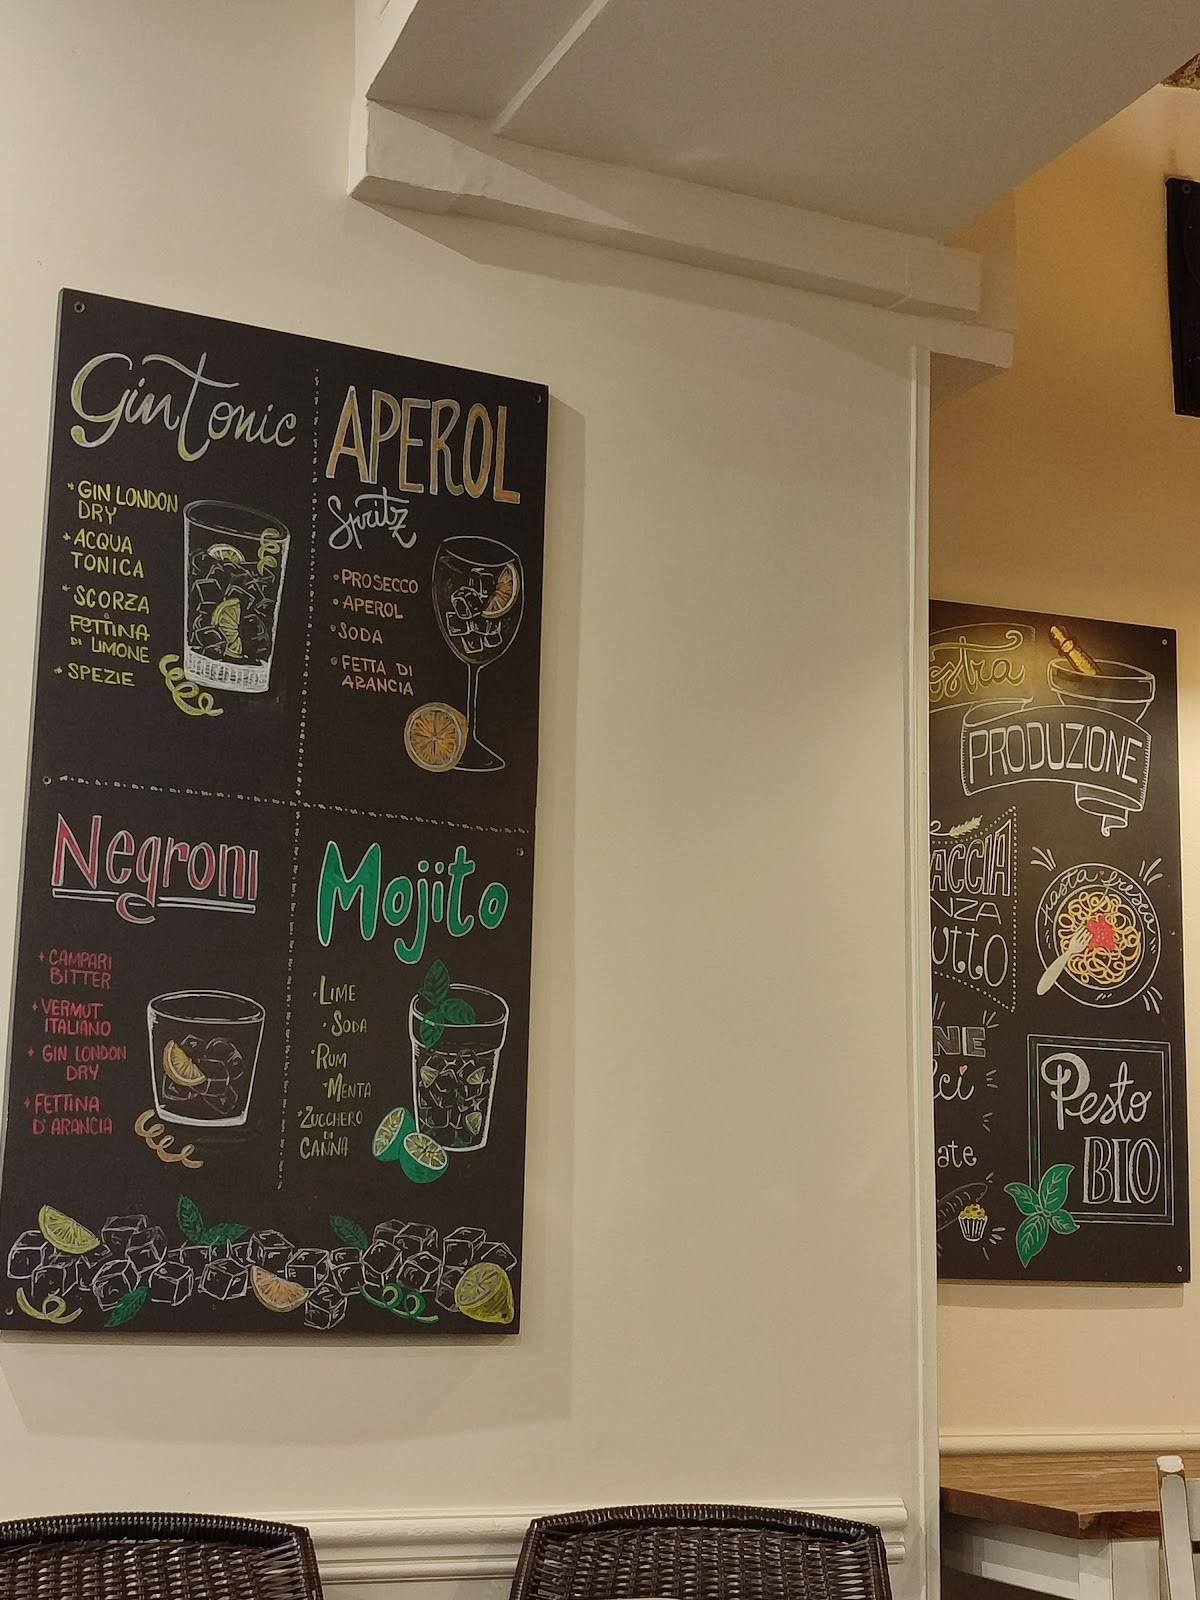 Gin Tonic
* GIN LONDON
DRY
* ACQUA
TONICA
* SCORZA
e
FETTINA
DI LIMONE
* SPEZIE
APEROL
Spritz
PROSECCO
APEROL
SODA
FETTA DI
ARANCIA
Negroni
CAMPARI
BITTER
VERMUT
ITALIANO
GIN LONDON
DRY
FETTINA
D'ARANCIA
Mojito
LIME
SODA
RUM
MENTA
ZUCCHERO
DI
CANNA
ostra
PRODUZIONE
ACCIA
NZA
UTTO
pasta fresca
NE
lci
ate
Pesto
BIO